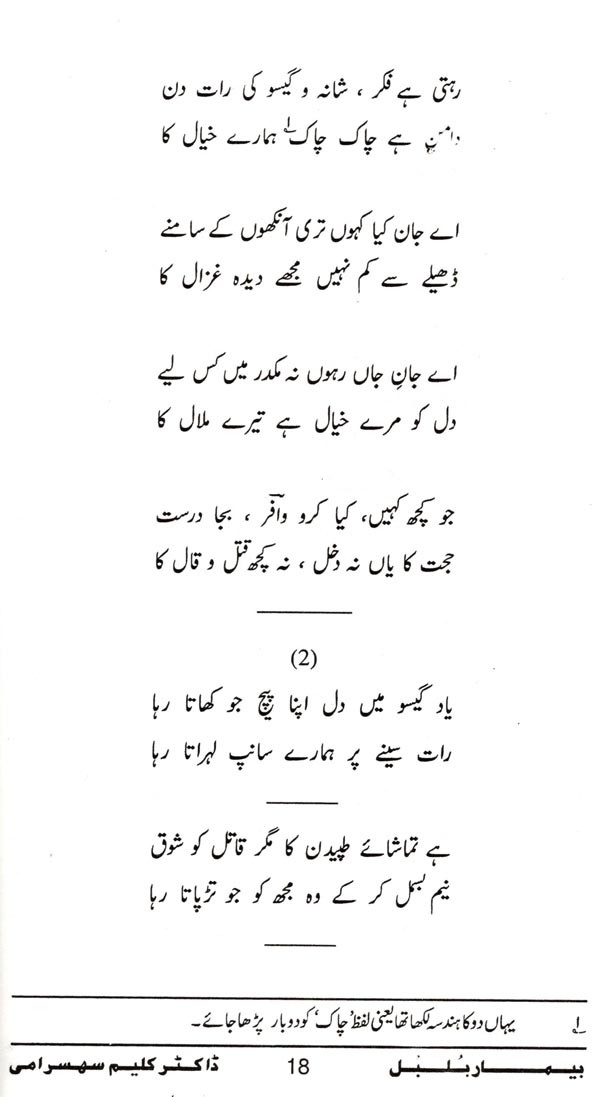 رہتی ہے فکر ، شانہ و گیسو کی رات دن
دامن ہے چاک چاک۱؎ ہمارے خیال کا
اے جان کیا کہوں تری آنکھوں کے سامنے
ڈھیلے سے کم نہیں مجھے دیدہ غزال کا
اے جانِ جاں رہوں نہ مکدر میں کس لیے
دل کو مرے خیال ہے تیرے ملال کا
جو کچھ کہیں، کیا کرو وافرؔ ، بجا درست
حجت کا یاں نہ دخل ، نہ کچھ قتل و قال کا
(2)
یاد گیسو میں دل اپنا پیچ جو کھاتا رہا
رات سینے پر ہمارے سانپ لہراتا رہا
ہے تماشائے طپیدن کا مگر قاتل کو شوق
نیم بسمل کر کے وہ مجھ کو جو تڑپاتا رہا
۱؎ یہاں دو کا ہندسہ لکھا تھا یعنی لفظ ’چاک‘ کو دو بار پڑھا جائے۔
بیمار بُلبَل 18 ڈاکٹر کلیم سہسرامی